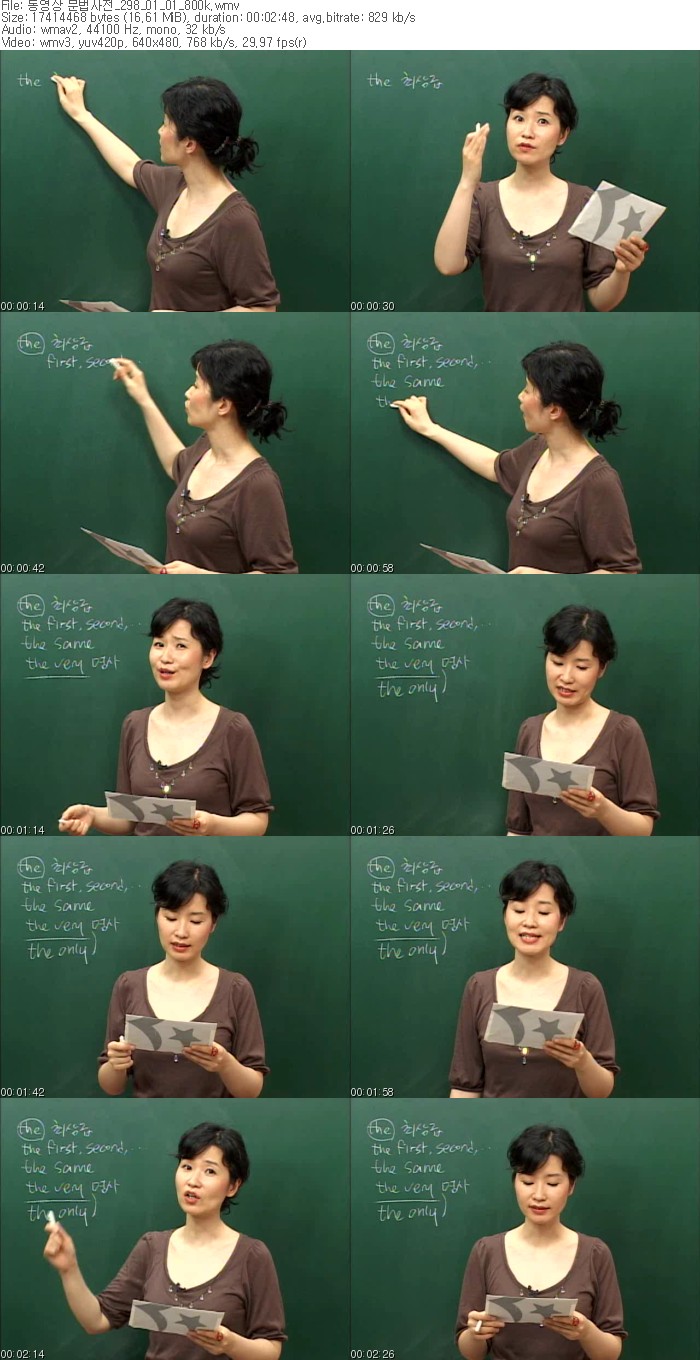 File: 동영상 문법사전_298_01_01_800k.wmv
Size: 17414468 bytes (16.61 MiB), duration: 00:02:48, avg.bitrate: 829 kb/s
Audio: wmav2, 44100 Hz, mono, 32 kb/s
Video: wmv3, yuv420p, 640x480, 768 kb/s, 29.97 fps(r)
the
00:00:14
the 최상급
00:00:30
the 최상급
first, seco
00:00:42
the 최상급
the first, second, ...
the same
th
00:00:58
the 최상급
the first, second, ...
the same
the very 명사
00:01:14
the 최상급
the first, second, ...
the same
the very 명사
the only
00:01:26
the 최상급
the first, second, ...
the same
the very 명사
the only
00:01:42
the 최상급
the first, second, ...
the same
the very 명사
the only
00:01:58
the 최상급
the first, second, ...
the same
the very 명사
the only
00:02:14
the 최상급
the first, second, ...
the same
the very 명사
the only
00:02:26